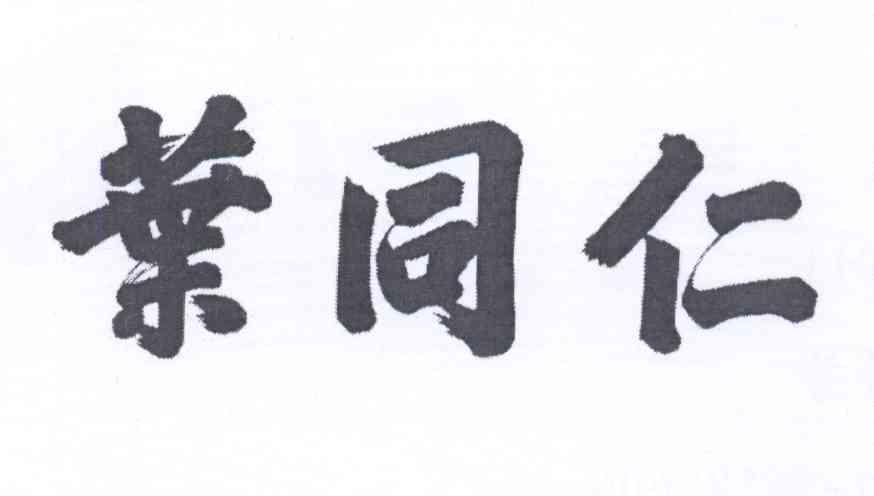 葉同仁